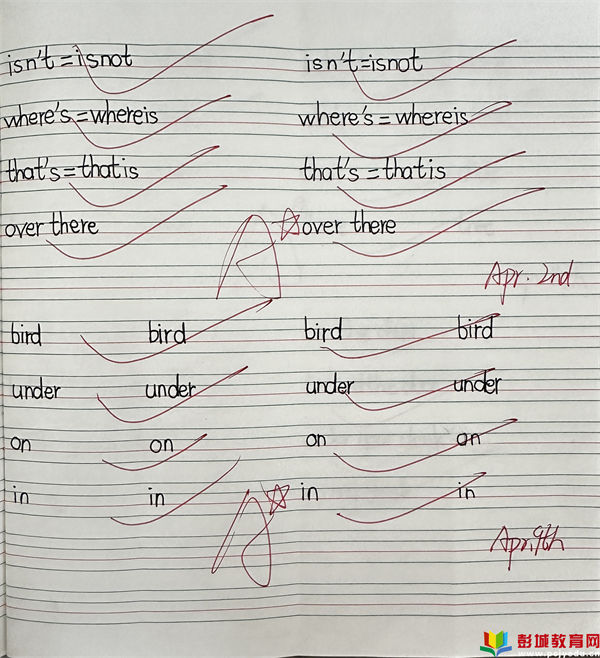 isn't = isnot isn't=isnot
where's = whereis where's = whereis
that's = thatis that's = thatis
over there over there
A
Apr. 2nd
bird bird bird bird
under under under under
on on on on
in in in in
A
Apr. 9th
彭城教育网